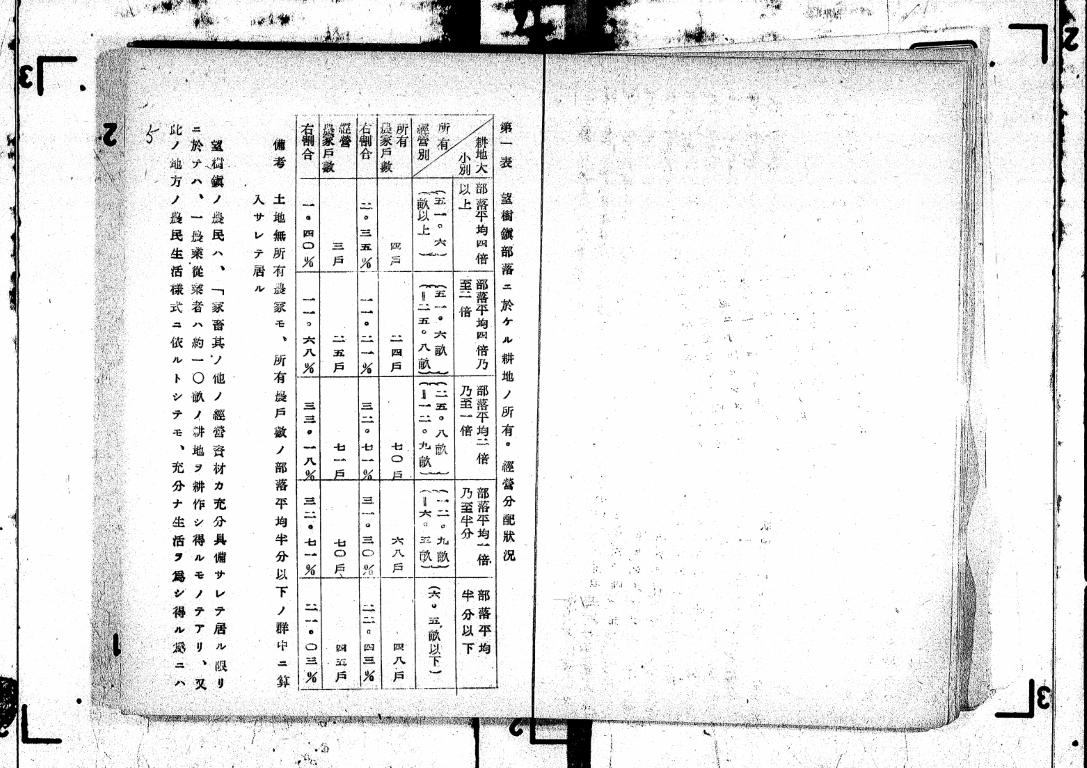 第一表　望樹鎭部落ニ於ケル耕地ノ所有・經營分配狀況
耕地大小別
所有經營別
部落平均四倍以上
(五一・六畝以上)
部落平均四倍乃至二倍
(五一・六畝—二五・八畝)
部落平均二倍乃至一倍
(二五・八畝—一二・九畝)
部落平均一倍乃至半分
(一二・九畝—六・三畝)
部落平均半分以下
(六・五畝以下)
所有農家戶數　四戶　二四戶　七〇戶　六八戶　四八戶
右割合　二・三五%　一一・二一%　三二・七一%　三一・三〇%　二二・四三%
經營農家戶數　三戶　二五戶　七一戶　七〇戶　四五戶
右割合　一・四〇%　一一・六八%　三三・一八%　三二・七一%　二一・〇三%
備考　土地無所有農家モ、所有農戶數ノ部落平均半分以下ノ群中ニ算
入サレテ居ル
望樹鎭ノ農民ハ、「家畜其ノ他ノ經營資材カ充分具備サレテ居ル限リ
ニ於テハ、一農業從業者ハ約一〇畝ノ耕地ヲ耕作シ得ルモノテアリ、又
此ノ地方ノ農民生活樣式ニ依ルトシテモ、充分ナ生活ヲ爲シ得ル爲ニハ
5
3
2
1
2
3
2